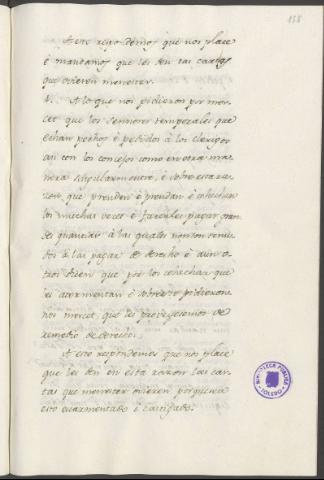 158
A esto respo demos que nos place
é mandamos que les den las cartas
que ovieren menester.
4. A lo que nos pidieron por mer-
cet que los Sennores temporales que
echan pechos é pedidos à los clerigos
asi con los concejos como en otra ma-
nera singularmente, é sobre esta ra-
zon, que prenden é prendan é cohechan
los muchas veces é facenles pagar gran-
des quantias à las quales non son tenu-
dos à las pagar de derecho é aun
otros dicen que por los cohechar que
les acormentan é sobre esto pidieron
nos mercet, que les proveyesemos de
remedio de derecho.
A esto respondemos que nos place
que les den en esta razon las car-
tas que menester ovieren porque sea
esto escarmentado é castigado.
BIBLIOTECA PUBLICA
TOLEDO